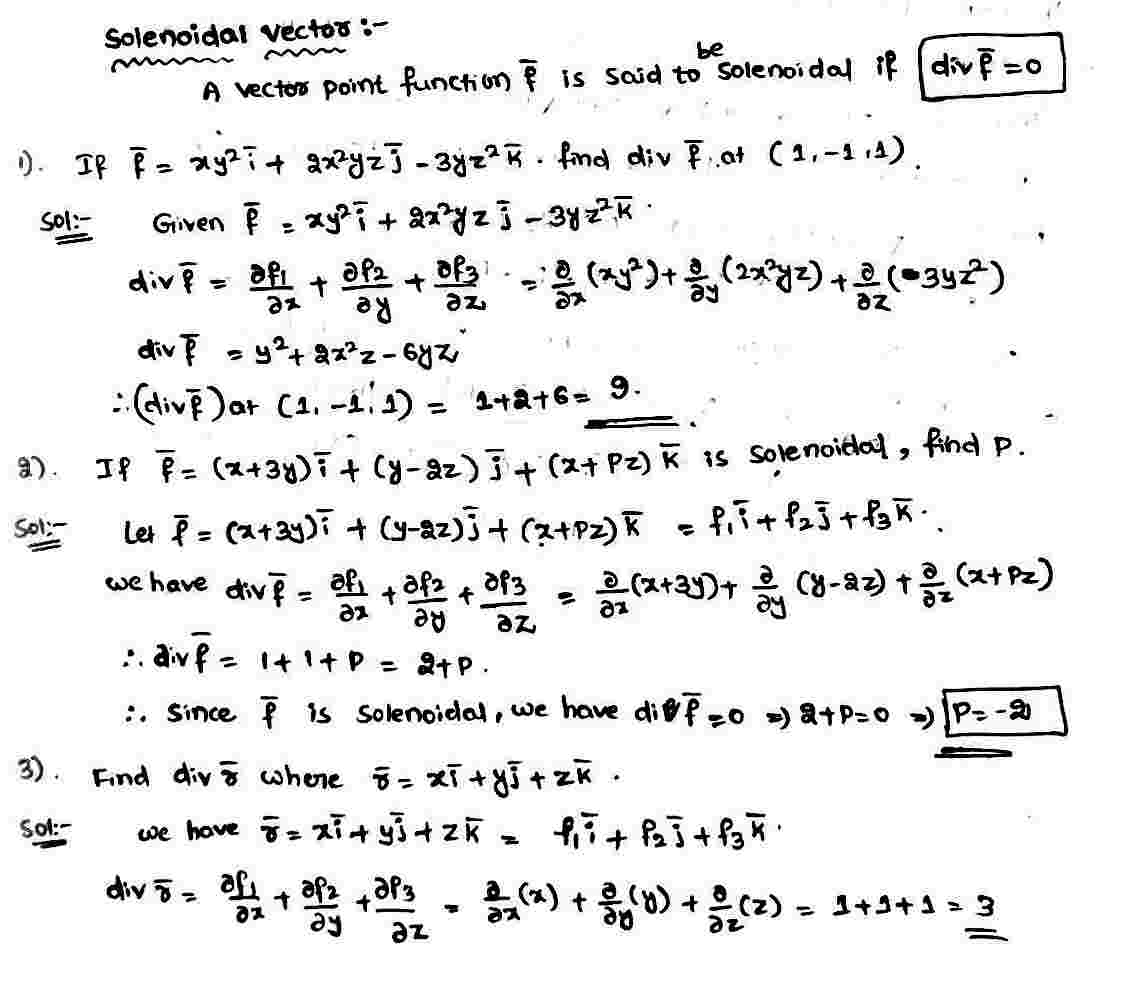 Solenoidal vector :-
A vector point function f̄ is said to be solenoidal if div f̄ = 0
1). If f̄ = xy² ī + 2x²yz j̄ - 3yz² k̄. find div f̄ at (1, -1, 1).
Sol:- Given f̄ = xy² ī + 2x²yz j̄ - 3yz² k̄.
div f̄ = ∂f₁/∂x + ∂f₂/∂y + ∂f₃/∂z = ∂/∂x (xy²) + ∂/∂y (2x²yz) + ∂/∂z (-3yz²)
div f̄ = y² + 2x²z - 6yz
∴ (div f̄) at (1, -1, 1) = 1+2+6 = 9.
2). If f̄ = (x+3y) ī + (y-2z) j̄ + (x+Pz) k̄ is solenoidal, find P.
Sol:- Let f̄ = (x+3y) ī + (y-2z) j̄ + (x+Pz) k̄ = f₁ ī + f₂ j̄ + f₃ k̄.
we have div f̄ = ∂f₁/∂x + ∂f₂/∂y + ∂f₃/∂z = ∂/∂x (x+3y) + ∂/∂y (y-2z) + ∂/∂z (x+Pz)
∴ div f̄ = 1+1+P = 2+P.
∴ Since f̄ is solenoidal, we have div f̄ = 0 ⇒ 2+P=0 ⇒ P = -2
3). Find div r̄ where r̄ = x ī + y j̄ + z k̄.
Sol:- we have r̄ = x ī + y j̄ + z k̄ = f₁ ī + f₂ j̄ + f₃ k̄.
div r̄ = ∂f₁/∂x + ∂f₂/∂y + ∂f₃/∂z = ∂/∂x (x) + ∂/∂y (y) + ∂/∂z (z) = 1+1+1 = 3